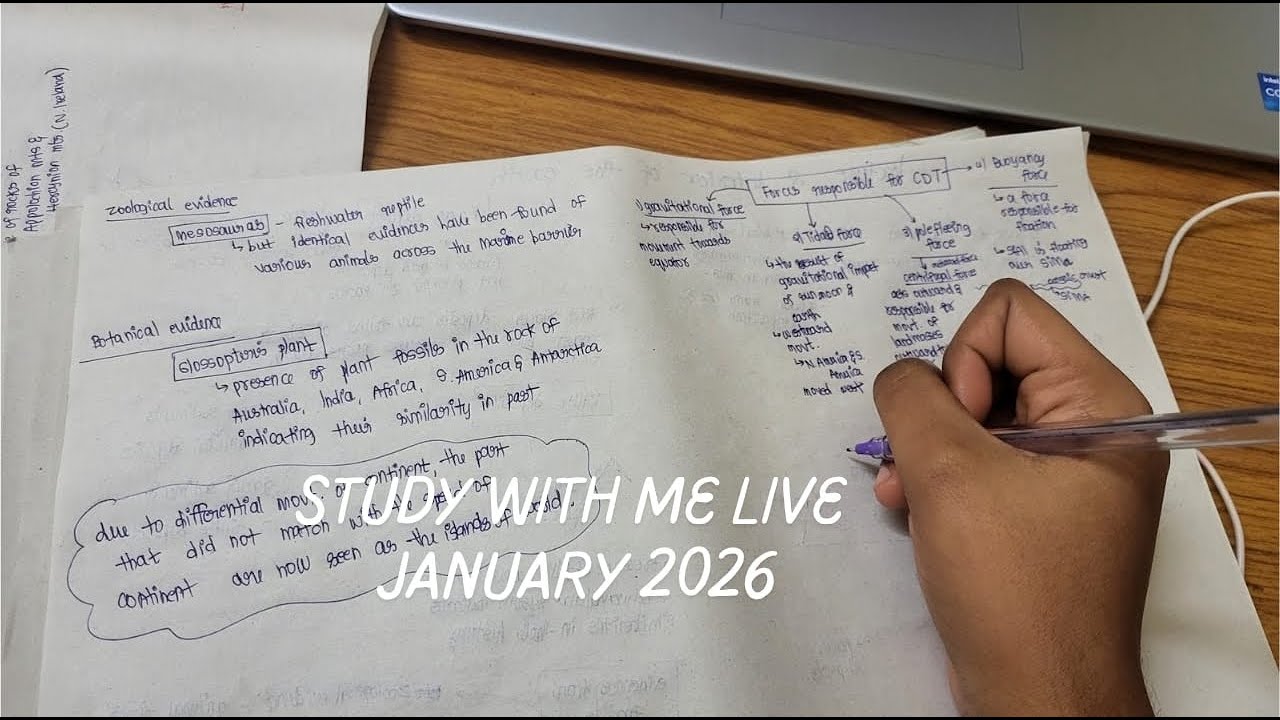 of rocks of
Appalachian mts &
Hercynian mts (N. Ireland)
Zoological evidence
mesosauras - freshwater reptile
↳ but identical evidences have been found of
various animals across the marine barrier
Botanical evidence
Glossopteris plant
↳ presence of plant fossils in the rock of
Australia, India, Africa, S. America & Antarctica
indicating their similarity in past
due to differential movt. of continent, the part
that did not match with the speed of
continent are now seen as the islands of world.
Forces responsible for CDT
1) gravitational force
↳ responsible for
movment towards
equator
2) Tidal force
↳ the result of
gravitational impact
of sun moon &
earth
↳ westward
movt.
↳ N. America & S.
America
moved west
3) pole fleeing
force
centrifugal force
acts outward &
responsible for
movt. of
landmasses
outward
4) Buoyancy
force
↳ a force
responsible for
floatation
↳ SIAL is floating
over SIMA
crust
SIMA
STUDY WITH ME LIVE
JANUARY 2026
intel